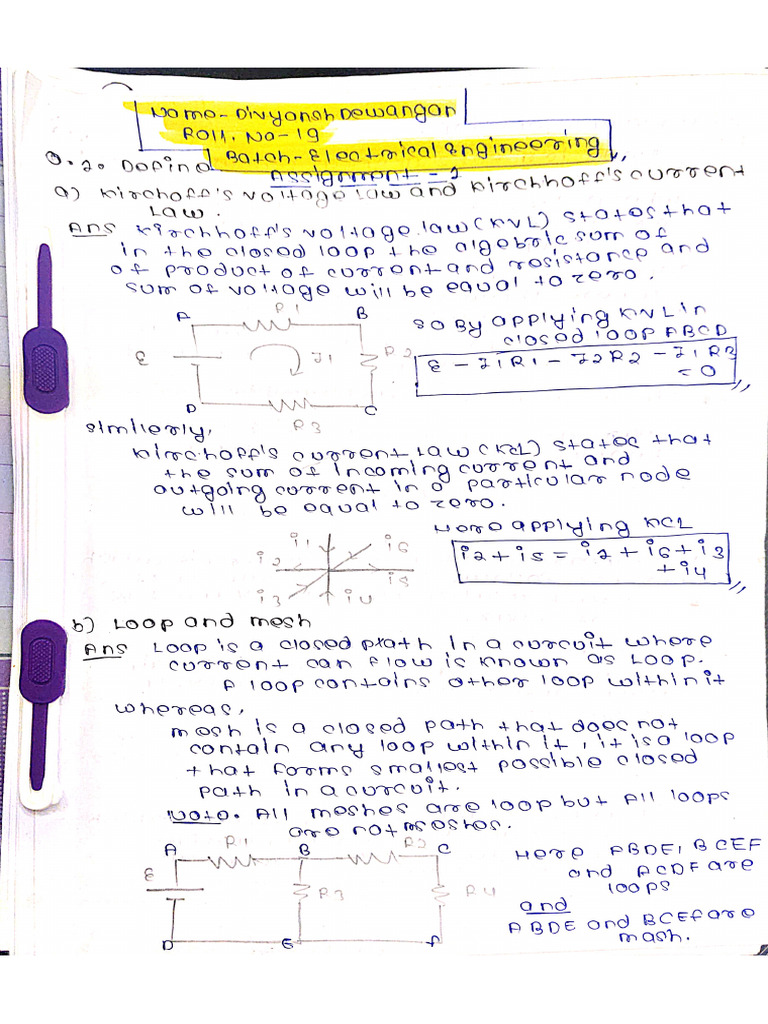 Name - Divyansh Dewangan
Roll. No - 19
Batch - Electrical Engineering
Assignment - 2
Q.2. Define
a) Kirchoff's voltage law and Kirchhoff's current
law.
Ans Kirchhoff's voltage law (KVL) states that
in the closed loop the algebric sum of
of product of current and resistance and
sum of voltage will be equal to zero.
A R1 B
So By applying KVL in
closed loop ABCD
ε I1 R2
ε - I1R1 - I2R2 - I1R3
= 0
D R3 C
similierly,
Kirchoff's current law (KCL) states that
the sum of Incoming current and
outgoing current in a particular node
will be equal to zero.
Here applying KCL
i2 + i5 = i2 + i6 + i3
+ i4
i1 i6
i2 i5
i3 i4
b) Loop and mesh
Ans Loop is a closed path in a curcuit where
current can flow is known as Loop.
A loop contains other loop within it
whereas,
mesh is a closed path that does not
contain any loop within it, it is a loop
that forms smallest possible closed
path in a curcuit.
Note. All meshes are loop but All loops
are not meshes.
A R1 B R2 C
ε R3 R4
D E F
Here ABDE, BCEF
and ACDF are
loops
and
ABDE and BCEF are
mash.